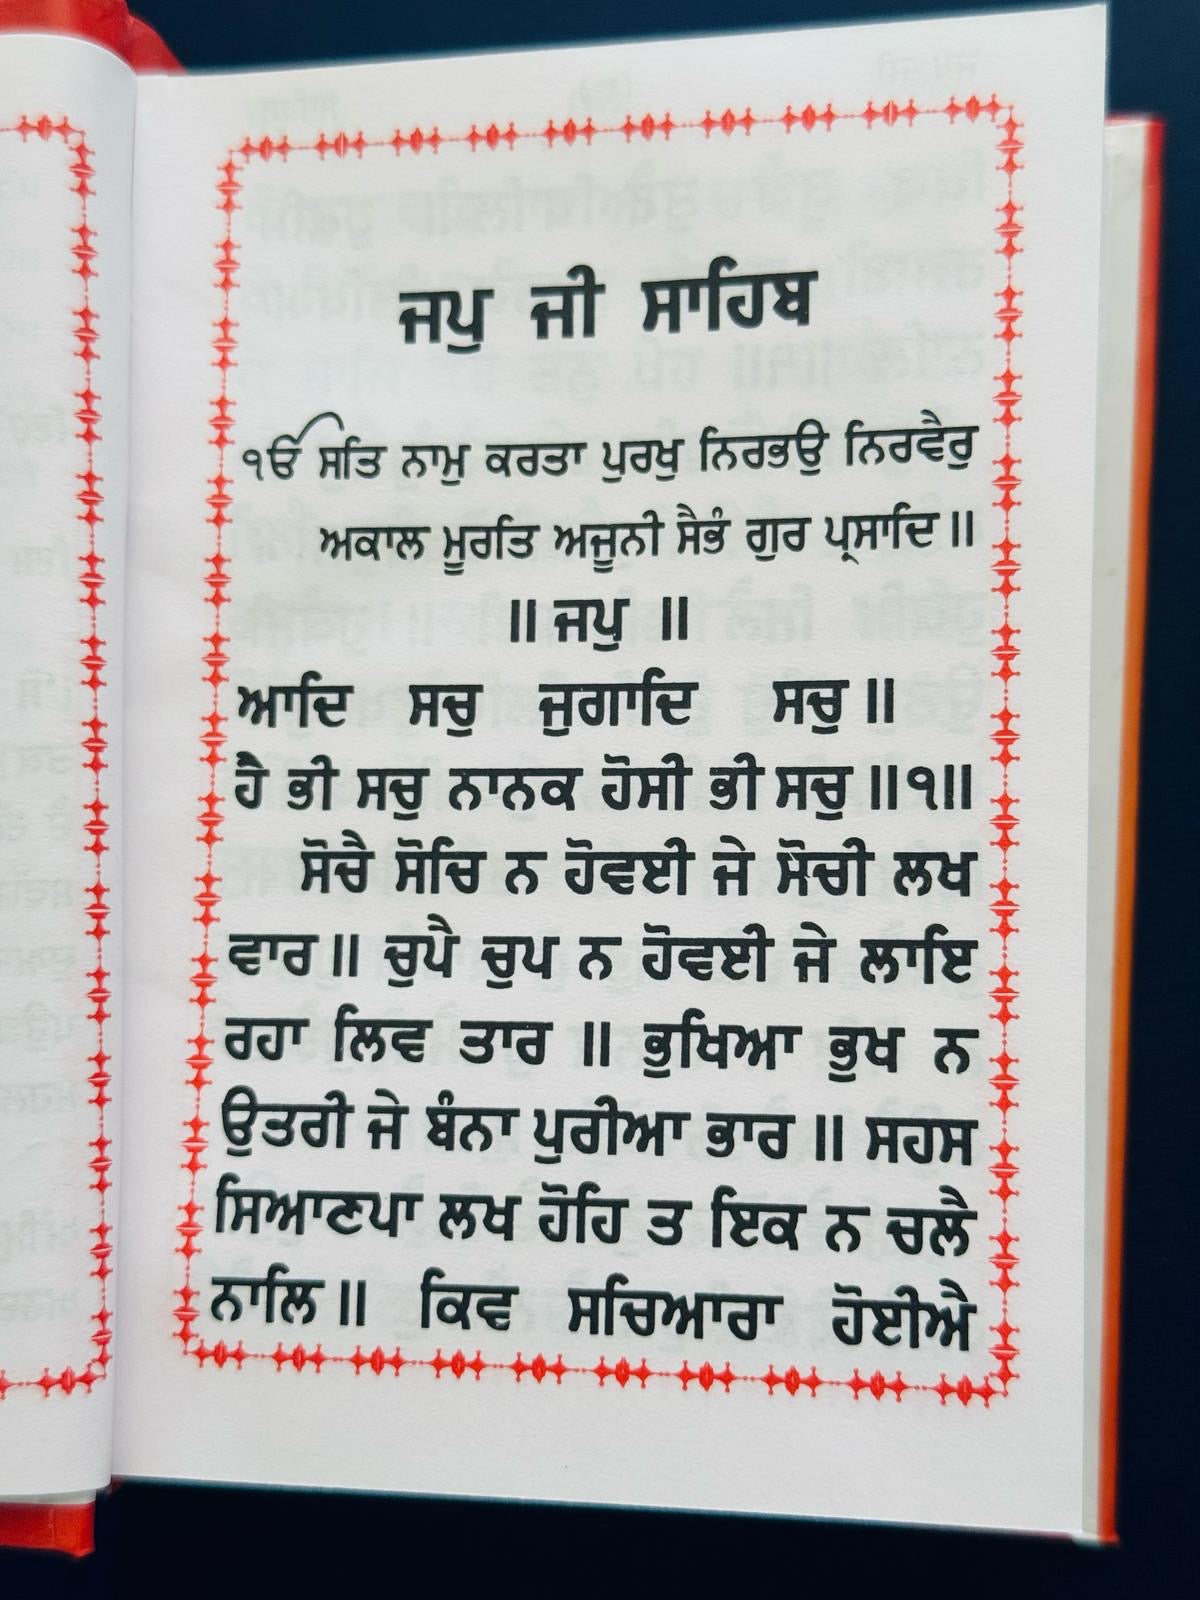 ਜਪੁ ਜੀ ਸਾਹਿਬ
੧ਓੁ ਸਤਿ ਨਾਮੁ ਕਰਤਾ ਪੁਰਖੁ ਨਿਰਭਉ ਨਿਰਵੈਰੁ
ਅਕਾਲ ਮੂਰਤਿ ਅਜੂਨੀ ਸੈਭੰ ਗੁਰ ਪ੍ਰਸਾਦਿ ॥
॥ ਜਪੁ ॥
ਆਦਿ ਸਚੁ ਜੁਗਾਦਿ ਸਚੁ ॥
ਹੈ ਭੀ ਸਚੁ ਨਾਨਕ ਹੋਸੀ ਭੀ ਸਚੁ ॥੧॥
ਸੋਚੈ ਸੋਚਿ ਨ ਹੋਵਈ ਜੇ ਸੋਚੀ ਲਖ
ਵਾਰ ॥ ਚੁਪੈ ਚੁਪ ਨ ਹੋਵਈ ਜੇ ਲਾਇ
ਰਹਾ ਲਿਵ ਤਾਰ ॥ ਭੁਖਿਆ ਭੁਖ ਨ
ਉਤਰੀ ਜੇ ਬੰਨਾ ਪੁਰੀਆ ਭਾਰ ॥ ਸਹਸ
ਸਿਆਣਪਾ ਲਖ ਹੋਹਿ ਤ ਇਕ ਨ ਚਲੈ
ਨਾਲਿ ॥ ਕਿਵ ਸਚਿਆਰਾ ਹੋਈਐ